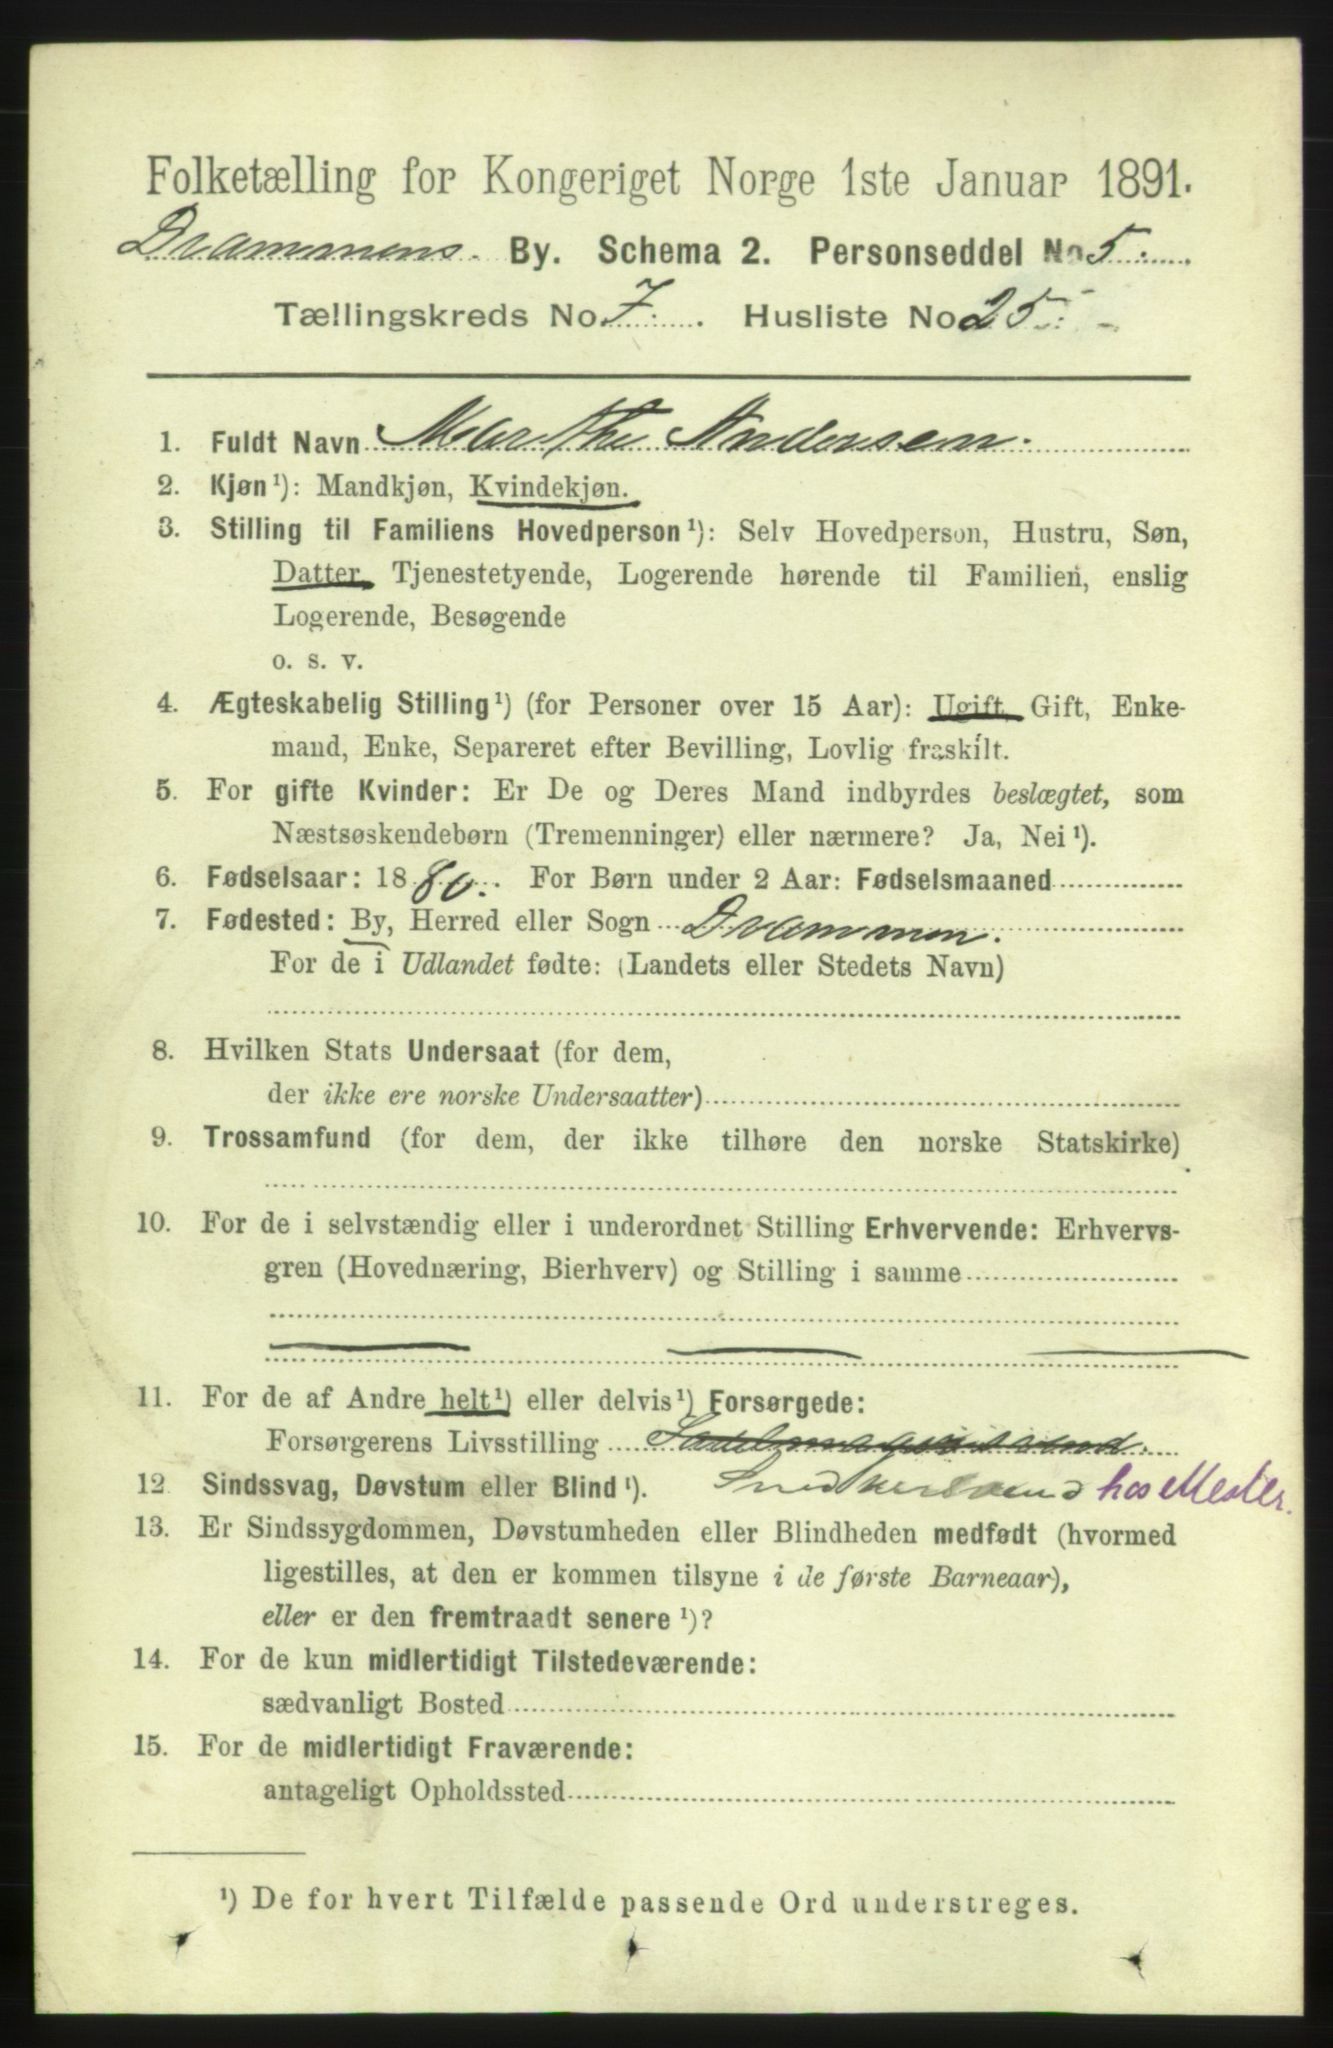 Folketælling for Kongeriget Norge 1ste Januar 1891.
Drammens By. Schema 2. Personseddel No 5.
Tællingskreds No. 7. Husliste No 25.
1. Fuldt Navn Marthe Andersen.
2. Kjøn¹): Mandkjøn, Kvindekjøn.
3. Stilling til Familiens Hovedperson¹): Selv Hovedperson, Hustru, Søn,
Datter, Tjenestetyende, Logerende hørende til Familien, enslig
Logerende, Besøgende
o. s. v.
4. Ægteskabelig Stilling¹) (for Personer over 15 Aar): Ugift, Gift, Enke-
mand, Enke, Separeret efter Bevilling, Lovlig fraskilt.
5. For gifte Kvinder: Er De og Deres Mand indbyrdes beslægtet, som
Næstsøskendebørn (Tremenninger) eller nærmere? Ja, Nei¹).
6. Fødselsaar: 1880. For Børn under 2 Aar: Fødselsmaaned
7. Fødested: By, Herred eller Sogn Drammen.
For de i Udlandet fødte: (Landets eller Stedets Navn)
8. Hvilken Stats Undersaat (for dem,
der ikke ere norske Undersaatter)
9. Trossamfund (for dem, der ikke tilhøre den norske Statskirke)
10. For de i selvstændig eller i underordnet Stilling Erhvervende: Erhvervs-
gren (Hovednæring, Bierhverv) og Stilling i samme
11. For de af Andre helt¹) eller delvis¹) Forsørgede:
Forsørgerens Livsstilling Sadelmagersvend.
12. Sindssvag, Døvstum eller Blind¹). Snedkersvend hos Mester.
13. Er Sindssygdommen, Døvstumheden eller Blindheden medfødt (hvormed
ligestilles, at den er kommen tilsyne i de første Barneaar),
eller er den fremtraadt senere¹)?
14. For de kun midlertidigt Tilstedeværende:
sædvanligt Bosted
15. For de midlertidigt Fraværende:
antageligt Opholdssted
¹) De for hvert Tilfælde passende Ord understreges.